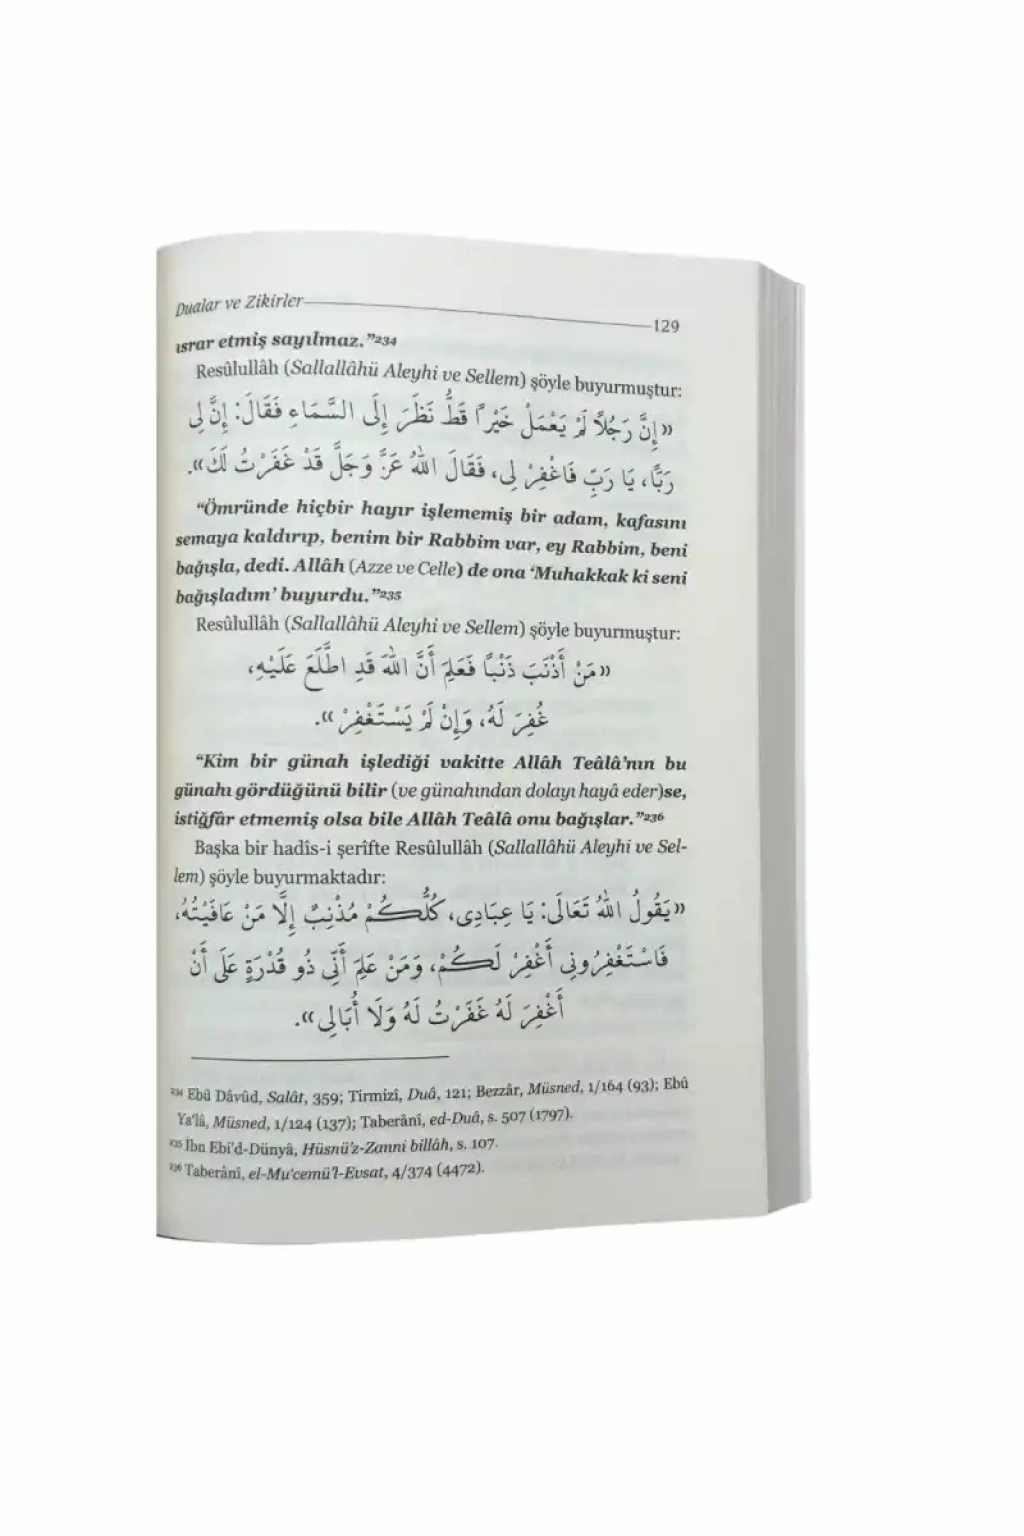 Dualar ve Zikirler 129
ısrar etmiş sayılmaz.”²³⁴
Resûlullâh (Sallallâhü Aleyhi ve Sellem) şöyle buyurmuştur:
«إِنَّ رَجُلًا لَمْ يَعْمَلْ خَيْرًا قَطُّ نَظَرَ إِلَى السَّمَاءِ فَقَالَ: إِنَّ لِي
رَبًّا، يَا رَبِّ فَاغْفِرْ لِي، فَقَالَ اللهُ عَزَّ وَجَلَّ قَدْ غَفَرْتُ لَكَ».
“Ömründe hiçbir hayır işlememiş bir adam, kafasını
semaya kaldırıp, benim bir Rabbim var, ey Rabbim, beni
bağışla, dedi. Allâh (Azze ve Celle) de ona ‘Muhakkak ki seni
bağışladım’ buyurdu.”²³⁵
Resûlullâh (Sallallâhü Aleyhi ve Sellem) şöyle buyurmuştur:
«مَنْ أَذْنَبَ ذَنْبًا فَعَلِمَ أَنَّ اللهَ قَدِ اطَّلَعَ عَلَيْهِ،
غُفِرَ لَهُ، وَإِنْ لَمْ يَسْتَغْفِرْ».
“Kim bir günah işlediği vakitte Allâh Teâlâ’nın bu
günahı gördüğünü bilir (ve günahından dolayı hayâ eder)se,
istiğfâr etmemiş olsa bile Allâh Teâlâ onu bağışlar.”²³⁶
Başka bir hadîs-i şerîfte Resûlullâh (Sallallâhü Aleyhi ve Sel-
lem) şöyle buyurmaktadır:
«يَقُولُ اللهُ تَعَالَى: يَا عِبَادِي، كُلُّكُمْ مُذْنِبٌ إِلَّا مَنْ عَافَيْتُهُ،
فَاسْتَغْفِرُونِي أَغْفِرْ لَكُمْ، وَمَنْ عَلِمَ أَنِّي ذُو قُدْرَةٍ عَلَى أَنْ
أَغْفِرَ لَهُ غَفَرْتُ لَهُ وَلَا أُبَالِي».
²³⁴ Ebû Dâvûd, Salât, 359; Tirmizî, Duâ, 121; Bezzâr, Müsned, 1/164 (93); Ebû
Ya‘lâ, Müsned, 1/124 (137); Taberânî, ed-Duâ, s. 507 (1797).
²³⁵ İbn Ebi’d-Dünyâ, Hüsnü’z-Zanni billâh, s. 107.
²³⁶ Taberânî, el-Mu‘cemü’l-Evsat, 4/374 (4472).